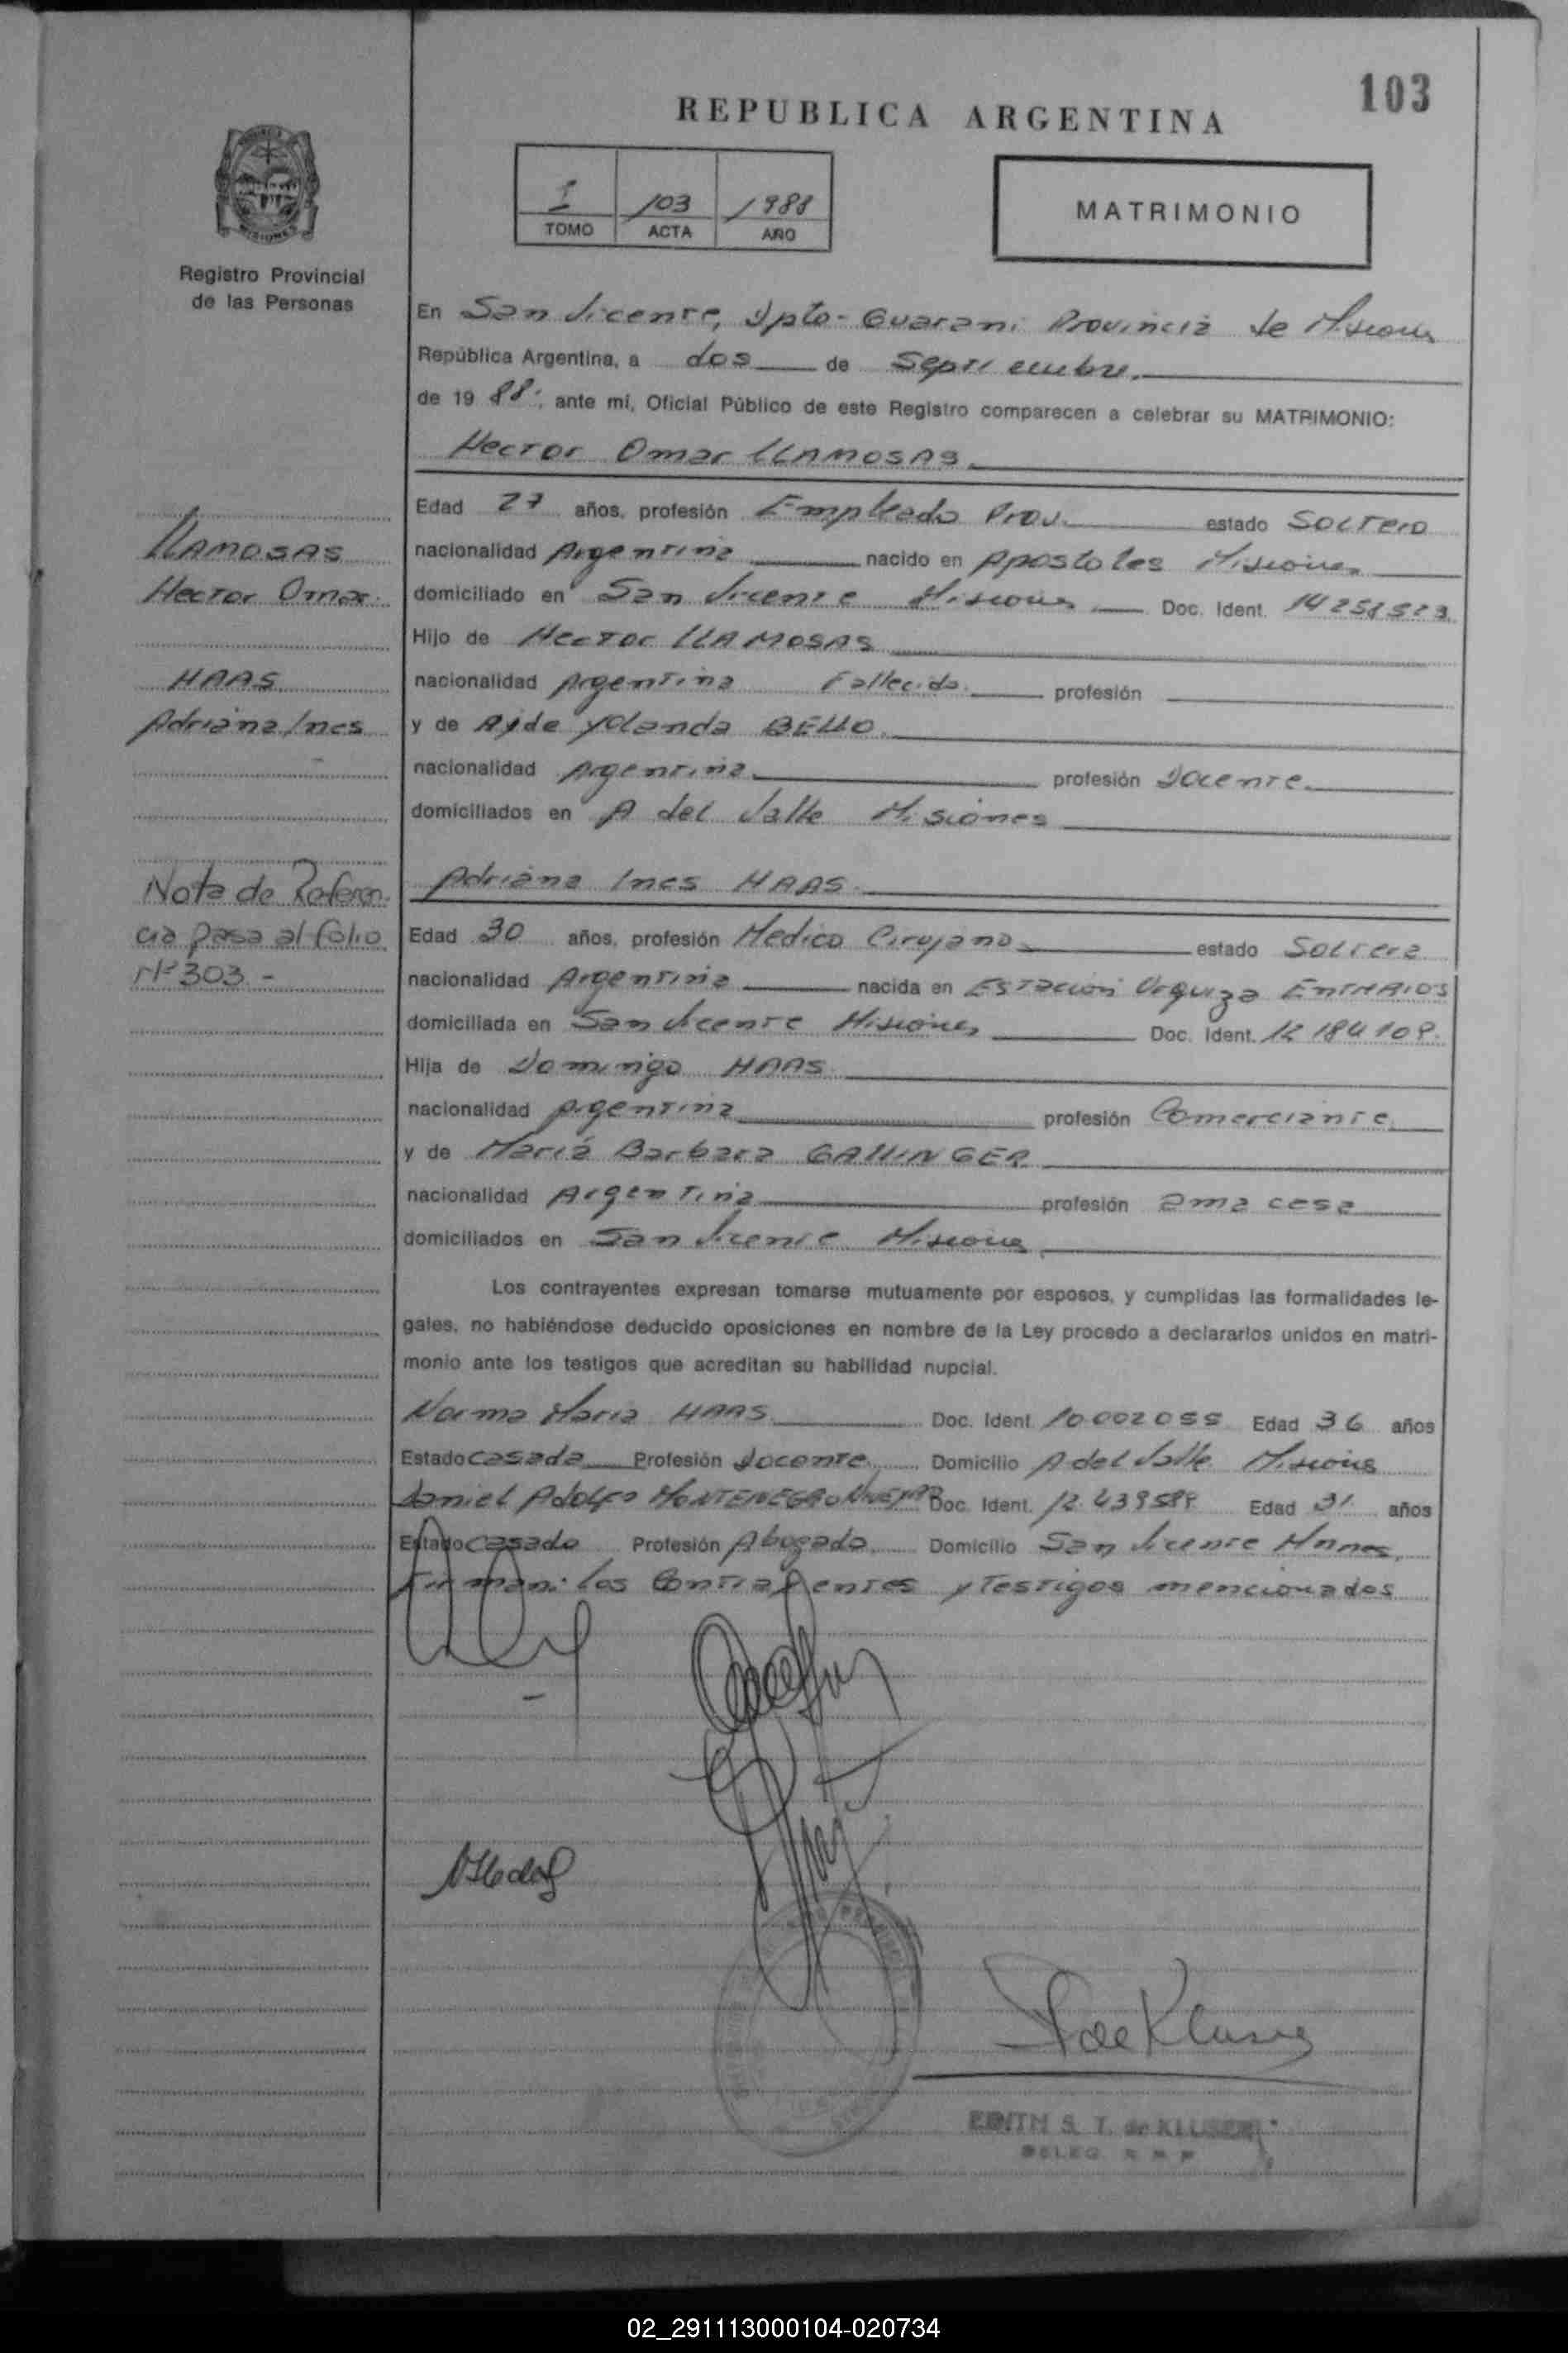 103
REPUBLICA ARGENTINA
I /03 /988
TOMO ACTA AÑO
MATRIMONIO
MISIONES
Registro Provincial
de las Personas
En San Vicente, Dpto- Guarani Provincia de Misiones
República Argentina, a dos de Septiembre.
de 19 88., ante mí, Oficial Público de este Registro comparecen a celebrar su MATRIMONIO:
Hector Omar LLAMOSAS
Edad 27 años, profesión Empleado Prov. estado Soltero
LLAMOSAS
nacionalidad Argentina nacido en Apostoles Misiones
Hector Omar.
domiciliado en San Vicente Misiones Doc. Ident.
Hijo de Hector LLAMOSAS
HAAS
nacionalidad Argentina Fallecido. profesión
Adriana Ines
y de Ayde Yolanda BELLO
nacionalidad Argentina profesión Docente
domiciliados en A del Valle Misiones
Nota de Referen.
cia pasa al folio
Nº 303.-
Adriana Ines HAAS.
Edad 30 años, profesión Medico Cirujano estado Soltera
nacionalidad Argentina nacida en Estación Urquiza EntRRIOS
domiciliada en San Vicente Misiones Doc. Ident. 12 184 109.
Hija de Domingo HAAS
nacionalidad Argentina profesión Comerciante
y de María Barbara GALLINGER
nacionalidad Argentina profesión ama casa
domiciliados en San Vicente Misiones
Los contrayentes expresan tomarse mutuamente por esposos, y cumplidas las formalidades le-
gales, no habiéndose deducido oposiciones en nombre de la Ley procedo a declararlos unidos en matri-
monio ante los testigos que acreditan su habilidad nupcial.
Norma Maria HAAS Doc. Ident. 10.002055 Edad 36 años
Estado casada Profesión docente Domicilio A del Valle Misiones
Daniel Adolfo MONTENEGRO Doc. Ident. 12.439589 Edad 31 años
Estado casado Profesión Abogado Domicilio San Vicente Mnnes.
Firman: los Contrayentes y Testigos mencionados
de Kluser
EDITH S. T. de KLUSER
DELEG. R R P
02_291113000104-020734